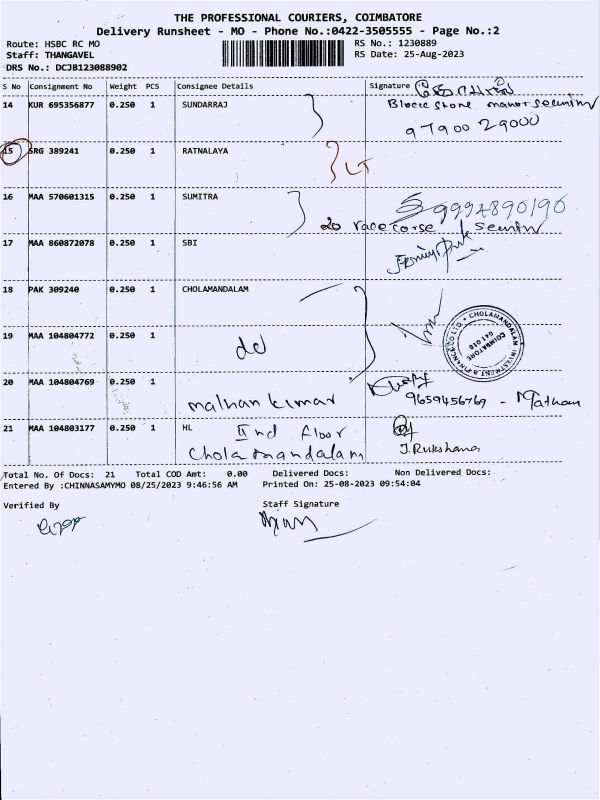 THE PROFESSIONAL COURIERS, COIMBATORE
Delivery Runsheet - MO - Phone No.:0422-3505555 - Page No.:2
Route: HSBC RC MO RS No.: 1230889
Staff: THANGAVEL RS Date: 25-Aug-2023
DRS No.: DCJB123088902
S No Consignment No Weight PCS Consignee Details Signature
14 KUR 695356877 0.250 1 SUNDARRAJ
manor
97900 29000
15 SRG 389241 0.250 1 RATNALAYA LT
16 MAA 570601315 0.250 1 SUMITRA
20 race corse
17 MAA 860872078 0.250 1 SBI
18 PAK 309240 0.250 1 CHOLAMANDALAM
CHOLAMANDALAM INVESTMENT & FINANCE CO LTD
COIMBATORE
641 018
19 MAA 104804772 0.250 1 do
20 MAA 104804769 0.250 1
9659456769 -
21 MAA 104803177 0.250 1 HL IInd floor
Cholamandalam
J.Rukshana
Total No. Of Docs: 21 Total COD Amt: 0.00 Delivered Docs: Non Delivered Docs:
Entered By :CHINNASAMYMO 08/25/2023 9:46:56 AM Printed On: 25-08-2023 09:54:04
Verified By Staff Signature